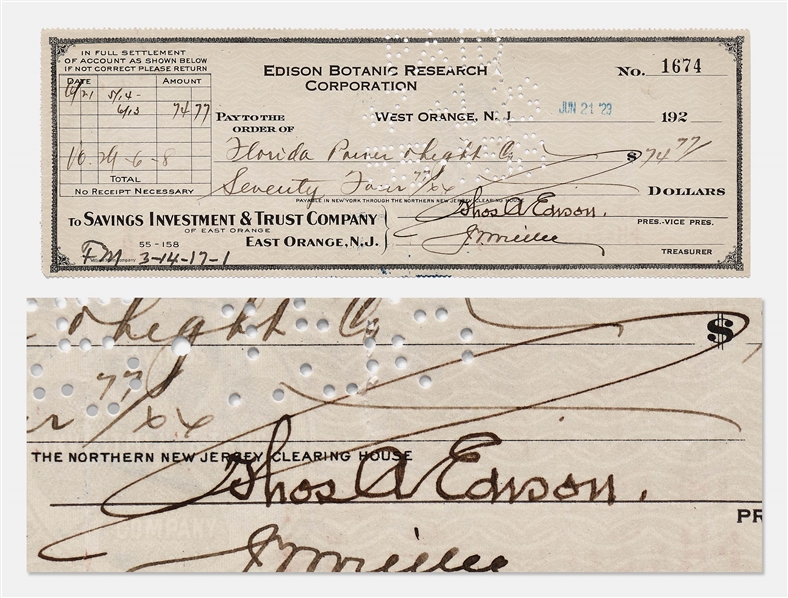 IN FULL SETTLEMENT
OF ACCOUNT AS SHOWN BELOW
IF NOT CORRECT PLEASE RETURN
DATE AMOUNT
6/21 5/14-
6/13 74 77
10-29-6-8
TOTAL
NO RECEIPT NECESSARY
EDISON BOTANIC RESEARCH
CORPORATION
No. 1674
WEST ORANGE, N. J. JUN 21 '29 192
PAY TO THE
ORDER OF
Florida Power & Light Co $74 77/
Seventy Four 77/xx DOLLARS
PAYABLE IN NEW YORK THROUGH THE NORTHERN NEW JERSEY CLEARING HOUSE
TO SAVINGS INVESTMENT & TRUST COMPANY
OF EAST ORANGE
EAST ORANGE, N.J.
Thos A Edison.
PRES.-VICE PRES.
TREASURER
55-158
FM 3-14-17-1
& Light Co $
77/xx
THE NORTHERN NEW JERSEY CLEARING HOUSE
Thos A Edison.
PR